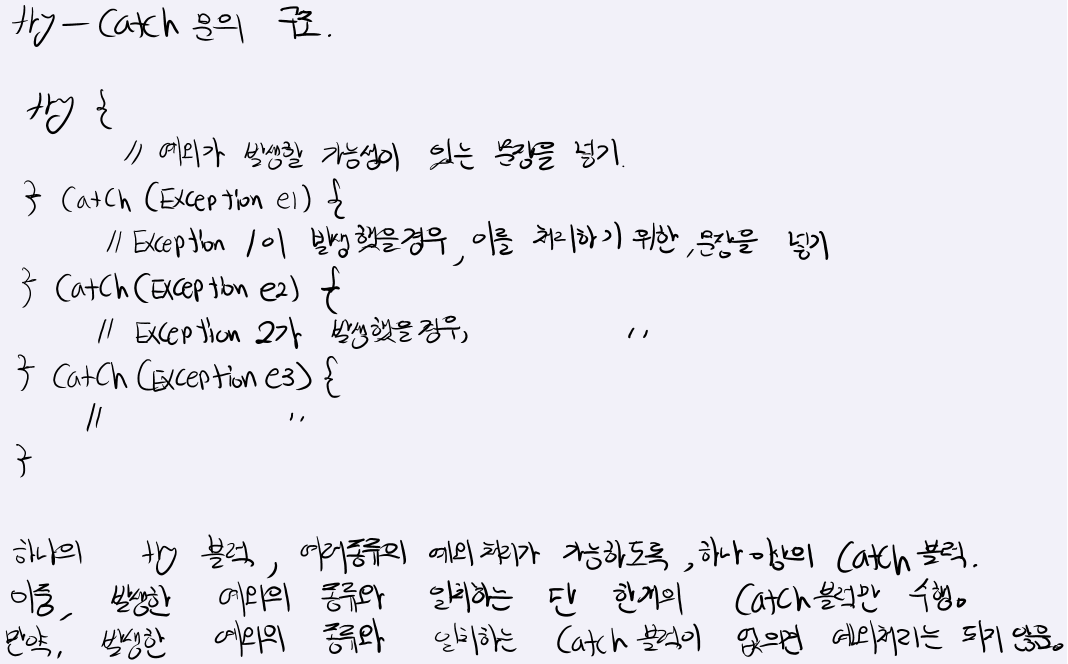 try - Catch 문의 구조.
try {
// 예외가 발생할 가능성이 있는 문장을 넣기.
} Catch (Exception e1) {
// Exception 1이 발생했을경우, 이를 처리하기 위한, 문장을 넣기
} Catch (Exception e2) {
// Exception 2가 발생했을경우, 〃
} Catch (Exception e3) {
// 〃
}
하나의 try 블럭, 여러종류의 예외처리가 가능하도록, 하나 이상의 Catch 블럭.
이중, 발생한 예외의 종류와 일치하는 단 한개의 Catch 블럭만 수행.
만약, 발생한 예외의 종류와 일치하는 Catch 블럭이 없으면 예외처리는 되지 않음.